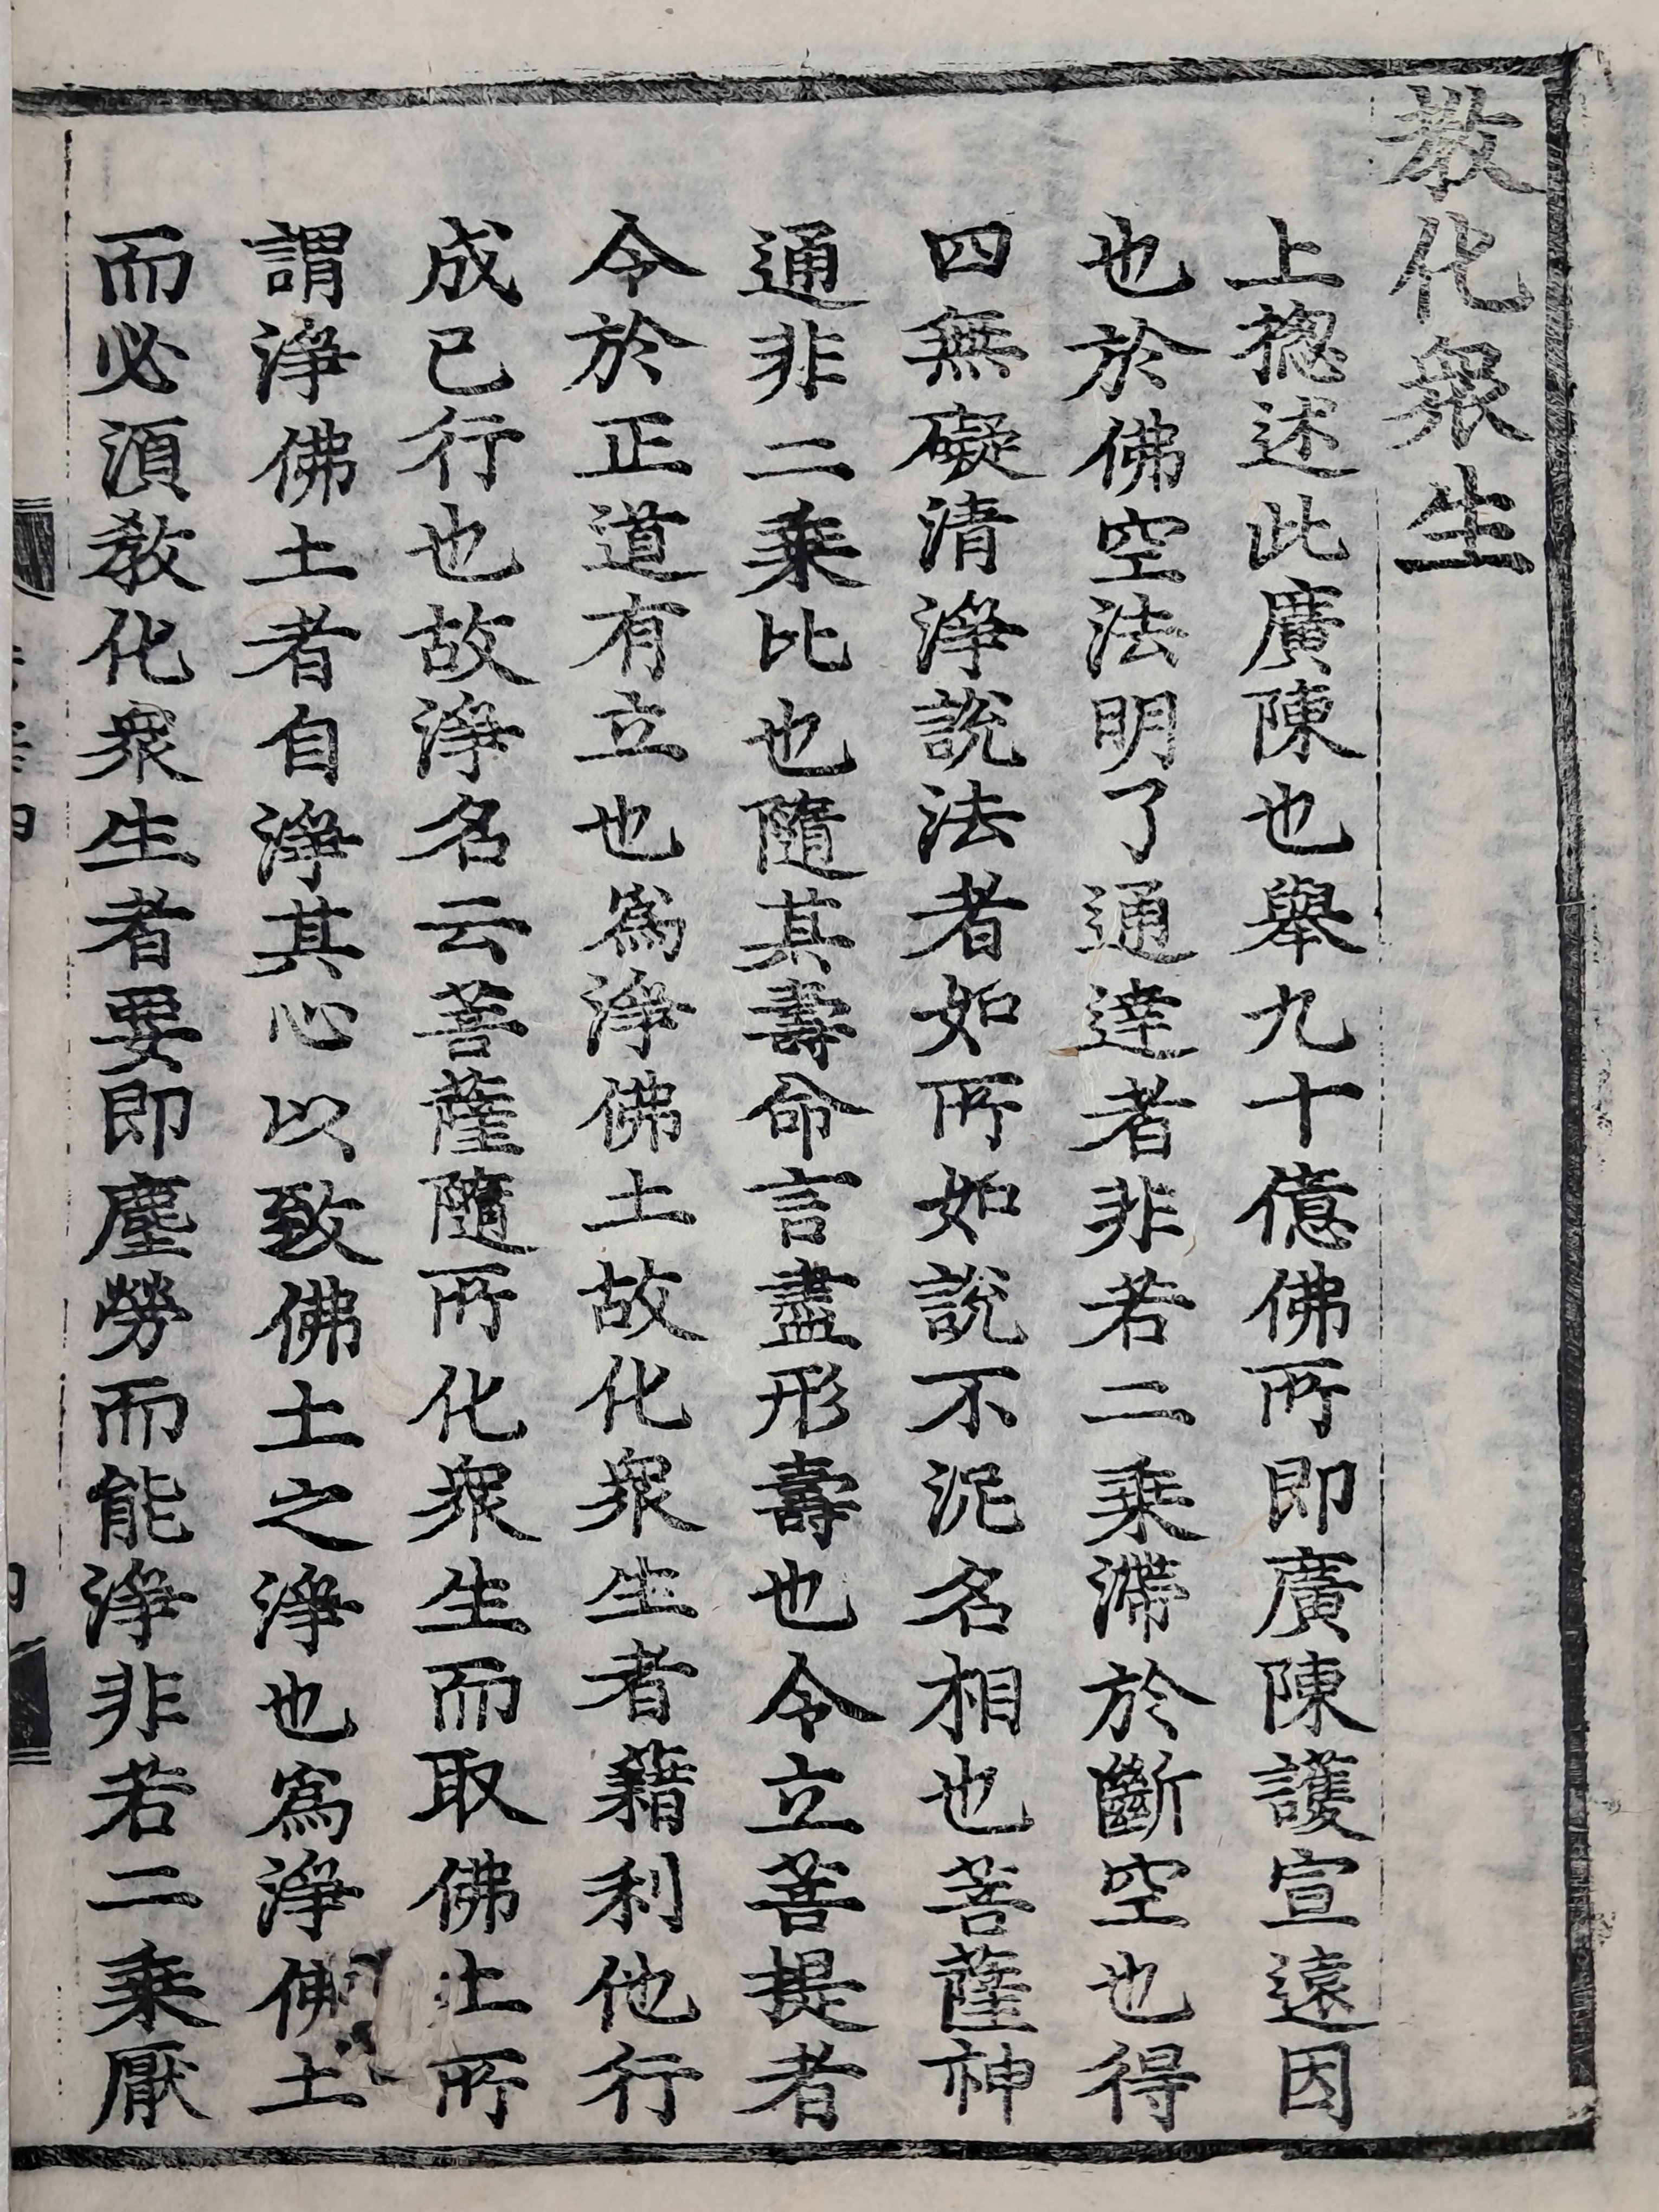 教化衆生
上揔述此廣陳也舉九十億佛所即廣陳護宣遠因
也於佛空法明了通達者非若二乘滯於斷空也得
四無礙清淨說法者如所如說不泥名相也菩薩神
通非二乘比也隨其壽命言盡形壽也令立菩提者
令於正道有立也爲淨佛土故化衆生者藉利他行
成己行也故淨名云菩薩隨所化衆生而取佛土所
謂淨佛土者自淨其心以致佛土之淨也爲淨佛土
而必湏教化衆生者要即塵勞而能淨非若二乘厭